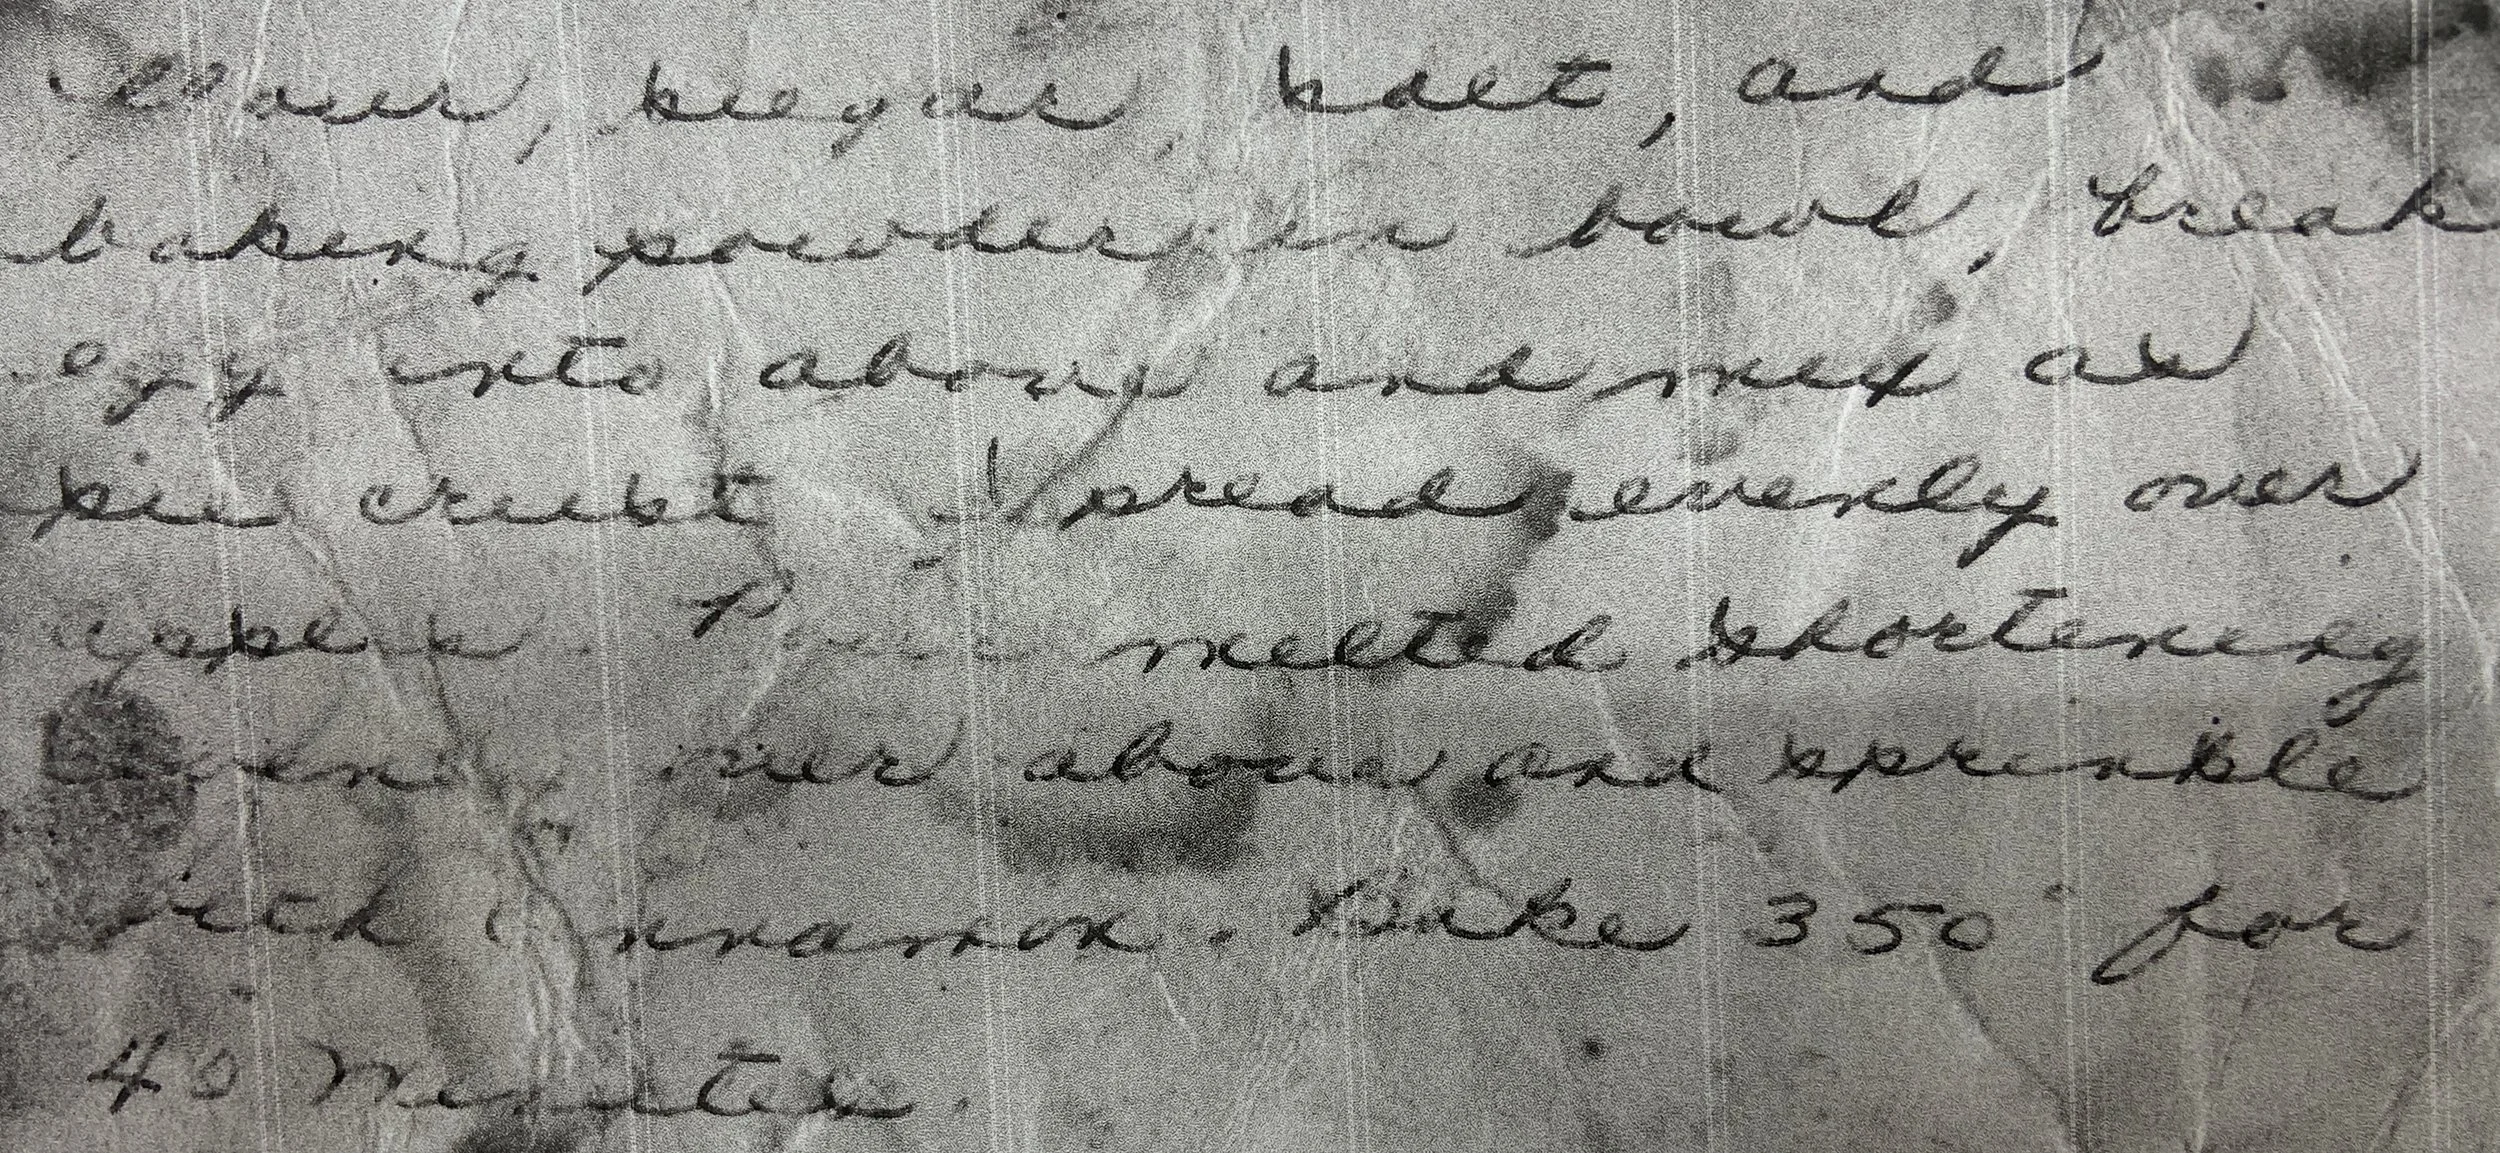 flour, sugar, salt, and
baking powder in bowl, break
egg into above and mix as
pie crust. Spread evenly over
apples. Pour melted shortening
evenly over above and sprinkle
with cinnamon. Bake 350° for
40 Minutes.